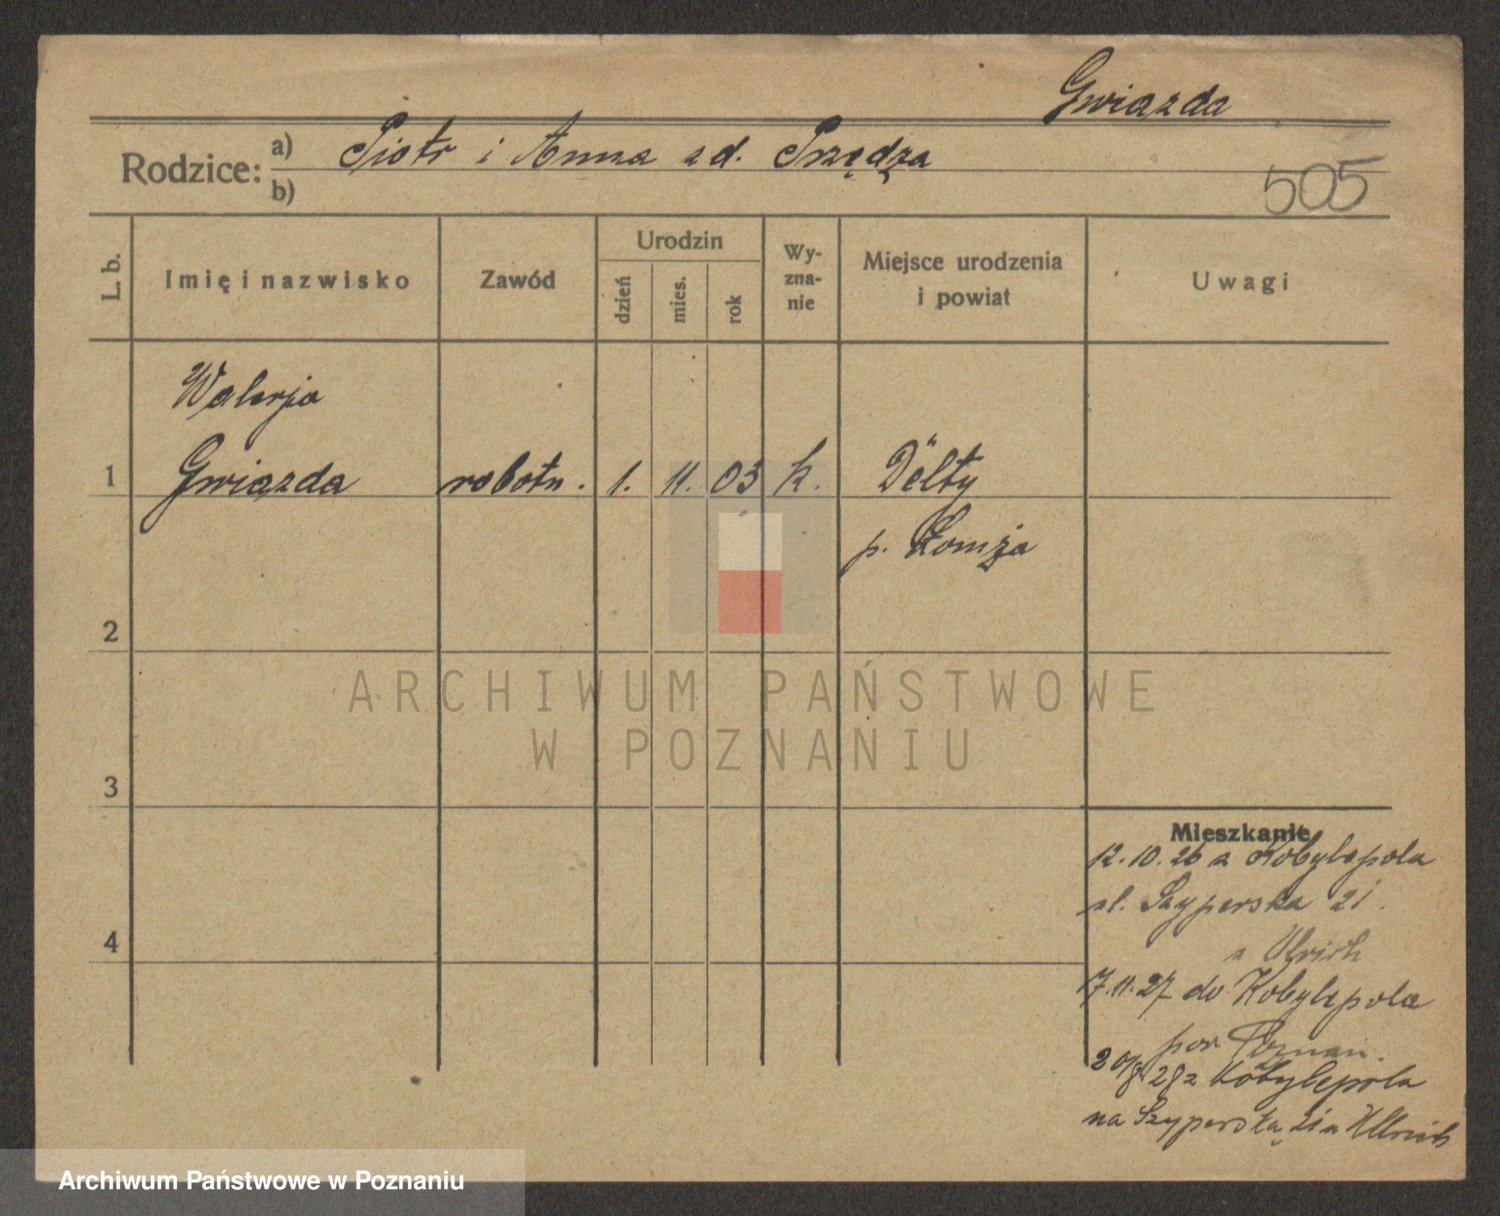 Gwiazda
Rodzice: a) Piotr i Anna zd. Przędza
b)
505
L. b.
Imię i nazwisko
Zawód
Urodzin
dzień
mies.
rok
Wy-
zna-
nie
Miejsce urodzenia
i powiat
Uwagi
Walerja
1 Gwiazda robotn. 1. 11. 03 k. Dëlty
p. Łomża
2
ARCHIWUM PAŃSTWOWE
W POZNANIU
3
Mieszkanie
12.10.26 z Kobylepola
ul. Szyperska 21.
u Ulrich
4
17.11.27 do Kobylepola
pow Poznań.
20/8 28 z Kobylepola
na Szyperską 21 u Ullrich
Archiwum Państwowe w Poznaniu